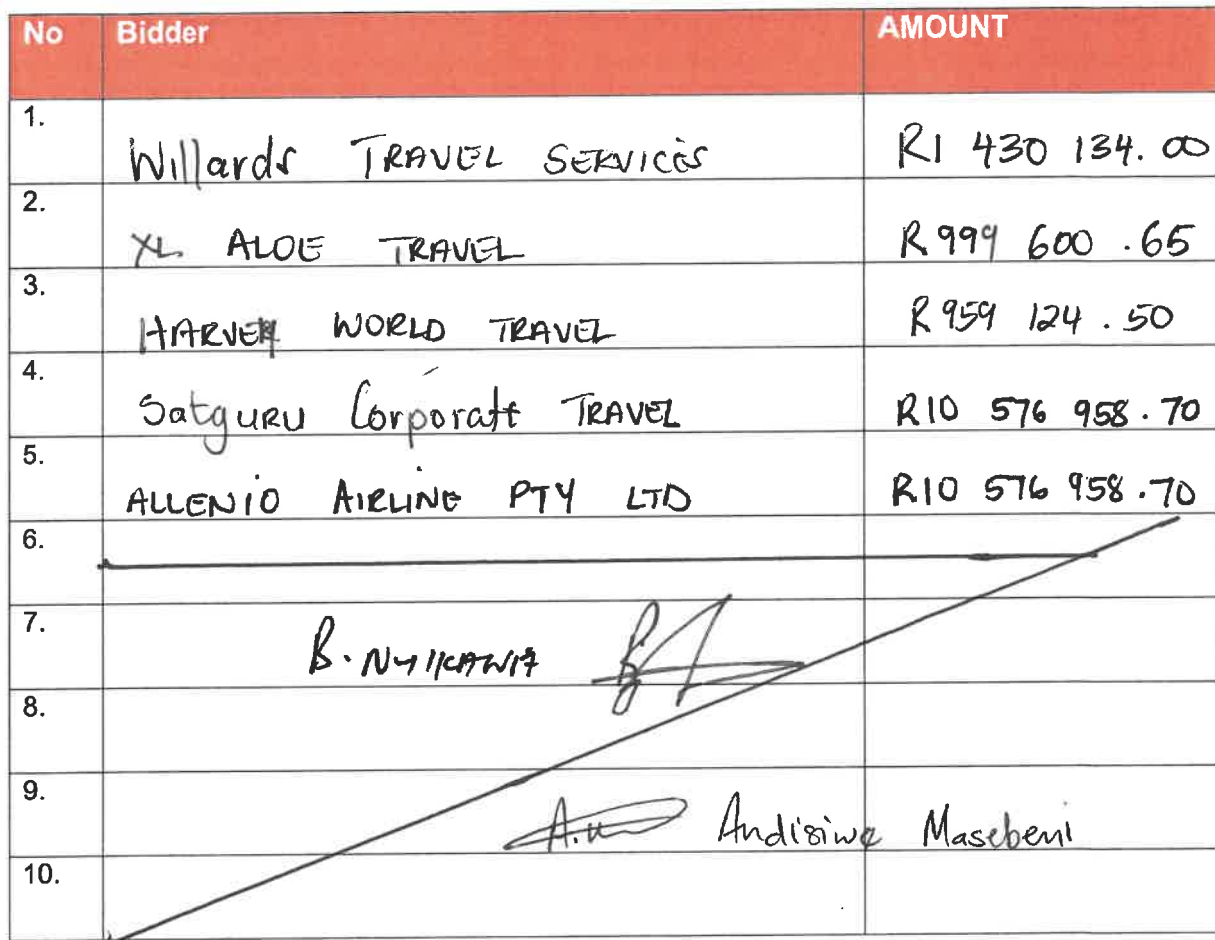 No Bidder AMOUNT
1. Willards TRAVEL SERVICES R1 430 134.00
2. XL ALOE TRAVEL R 999 600 .65
3. HARVEY WORLD TRAVEL R 959 124 .50
4. Satguru Corporate TRAVEL R10 576 958.70
5. ALLENIO AIRLINE PTY LTD R10 576 958.70
6.
7. B.
8.
9. Andisiwe Masebeni
10.